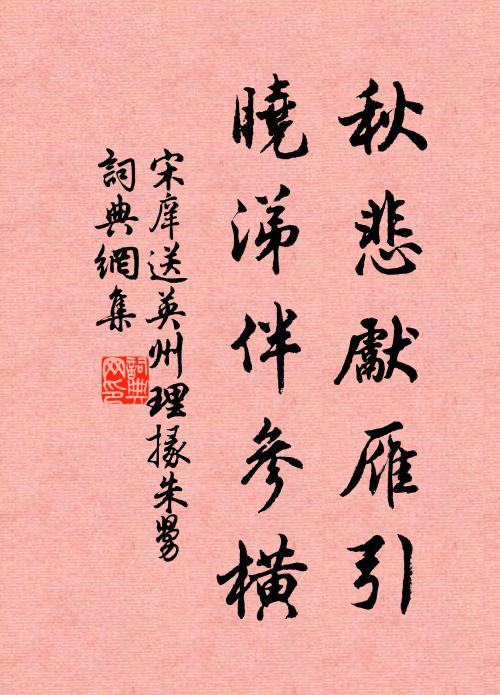 秋悲獻雁引
曉涕伴參橫
宋庠送英州理掾朱勞
詞典網集
詞典
网印